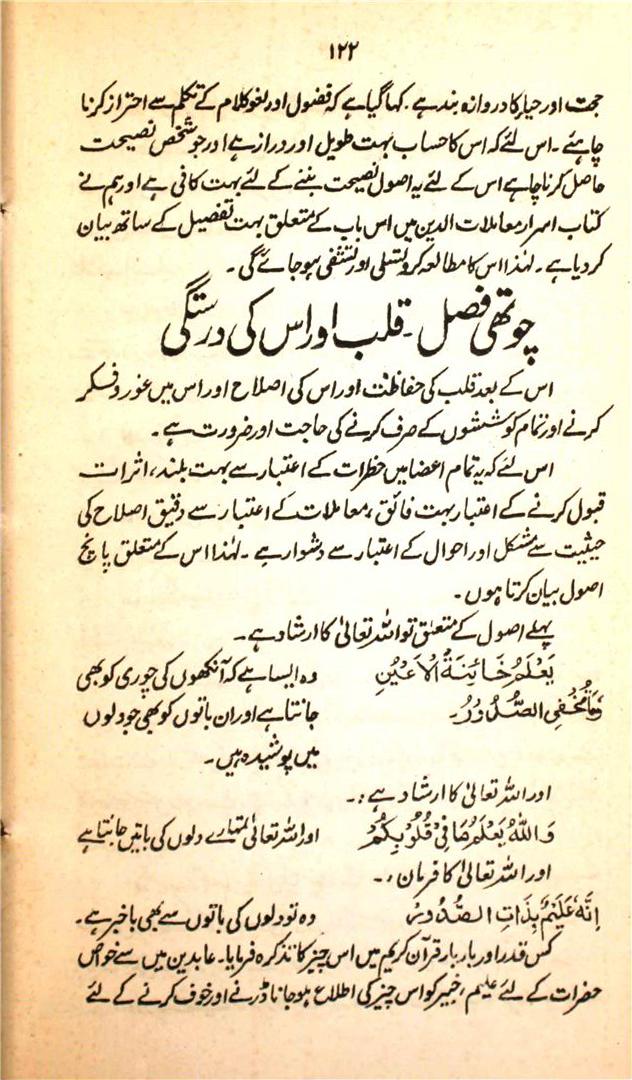 ۱۲۲
حجت اور حیار کا دروازہ بند ہے۔ کہا گیا ہے کہ فضول اور لغو کلام کے تکلم سے احتراز کرنا
چاہئے۔ اس لئے کہ اس کا حساب بہت طویل اور دراز ہے اور جو شخص نصیحت
حاصل کرنا چاہے اس کے لئے یہ اصول نصیحت بننے کے لئے بہت کافی ہے اور ہم نے
کتاب اسرار معاملات الدین میں اس باب کے متعلق بہت تفصیل کے ساتھ بیان
کر دیا ہے۔ لہٰذا اس کا مطالعہ کرو تسلی اور تشفی ہو جائے گی۔
چوتھی فصل۔ قلب اور اس کی درستگی
اس کے بعد قلب کی حفاظت اور اس کی اصلاح اور اس میں غور و فکر
کرنے اور تمام کوششوں کے صرف کرنے کی حاجت اور ضرورت ہے۔
اس لئے کہ یہ تمام اعضا میں خطرات کے اعتبار سے بہت بلند، اثرات
قبول کرنے کے اعتبار بہت فائق، معاملات کے اعتبار سے دقیق اصلاح کی
حیثیت سے مشکل اور احوال کے اعتبار سے دشوار ہے۔ لہٰذا اس کے متعلق پانچ
اصول بیان کرتا ہوں۔
پہلے اصول کے متعلق تو اللہ تعالیٰ کا ارشاد ہے۔
یَعْلَمُ خَائِنَةُ الْاَعْیُنِ وہ ایسا ہے کہ آنکھوں کی چوری کو بھی
وَمَا تُخْفِی الصُّدُوْرُ۔ جانتا ہے اور ان باتوں کو بھی جو دلوں
میں پوشیدہ ہیں۔
اور اللہ تعالیٰ کا ارشاد ہے:۔
وَاللّٰهُ یَعْلَمُ مَا فِیْ قُلُوْبِكُمْ اور اللہ تعالیٰ تمہارے دلوں کی باتیں جانتا ہے
اور اللہ تعالیٰ کا فرمان:۔
اِنَّهٗ عَلِیْمٌ بِذَاتِ الصُّدُوْرِ وہ تو دلوں کی باتوں سے بھی باخبر ہے۔
کس قدر اور بار بار قرآن کریم میں اس چیز کا تذکرہ فرمایا۔ عابدین میں سے خواص
حضرات کے لئے علیم، خبیر کو اس چیز کی اطلاع ہو جانا ڈرنے اور خوف کرنے کے لئے